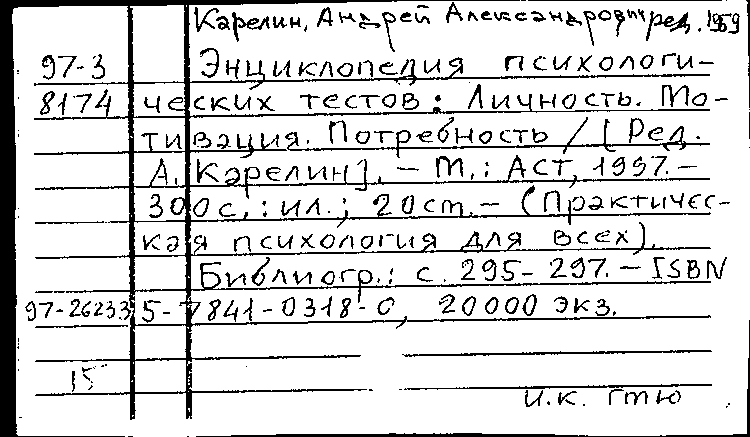 Карелин, Андрей Александрович ред. 1959
97-3 Энциклопедия психологи-
8174 ческих тестов: Личность. Мо-
тивация. Потребность / [Ред.
А. Карелин]. — М.: АСТ, 1997. —
300 с.: ил.; 20 cm. — (Практичес-
кая психология для всех).
Библиогр.: с. 295-297. — ISBN
97-26233 5-7841-0318-0, 20000 экз.
15
И.К. ГТЮ